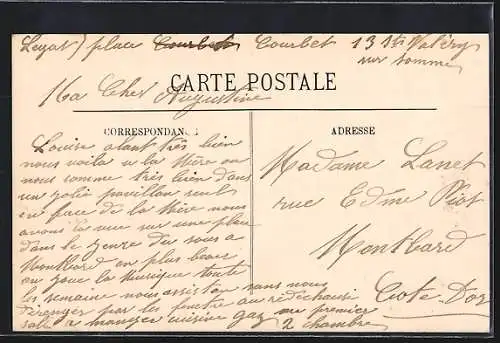 Legat) place Courbet Courbet 13 St Valéry
sur somme
Ma Cher Augustine
CARTE POSTALE
CORRESPONDANCE
ADRESSE
Louise alant très bien
nous voila a la Mère on
nous somme très bien dans
un jolie pavillon seul
en face de la Mère nous
avons la vue sur une place
dans le genre du sous a
Montbard en plus beau
on joue la Musique toute
les semaine nous assiston sans nous
déranger par les fenetre au redéchaussé
salle a manger cuisine gaz au premier
2 chambre
Madame Lanet
rue Edme Piot
Montbard
Cote-Dor